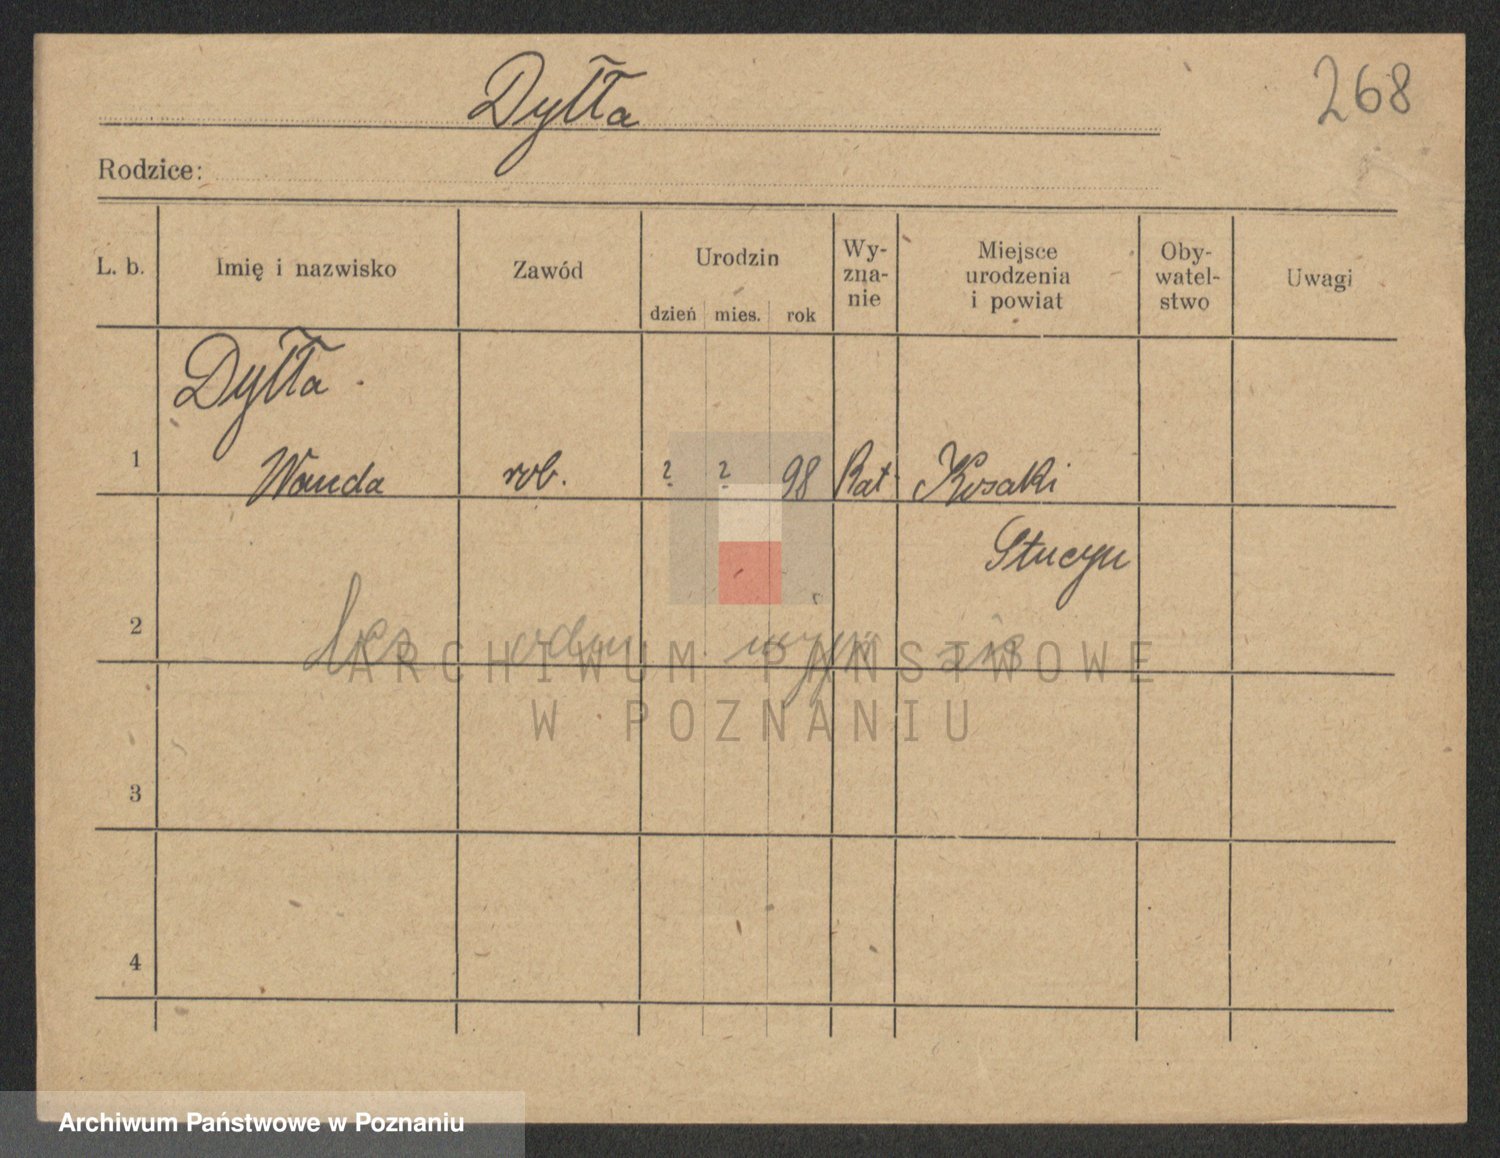 Dyłła
268
Rodzice:
L. b.
Imię i nazwisko
Zawód
Urodzin
dzień mies. rok
Wy-
zna-
nie
Miejsce
urodzenia
i powiat
Oby-
watel-
stwo
Uwagi
Dyłła.
1 Wanda rob. ? ? 98 Kat. Kosaki
Stuczyn
2 bez
ARCHIWUM PAŃSTWOWE
W POZNANIU
3
4
Archiwum Państwowe w Poznaniu